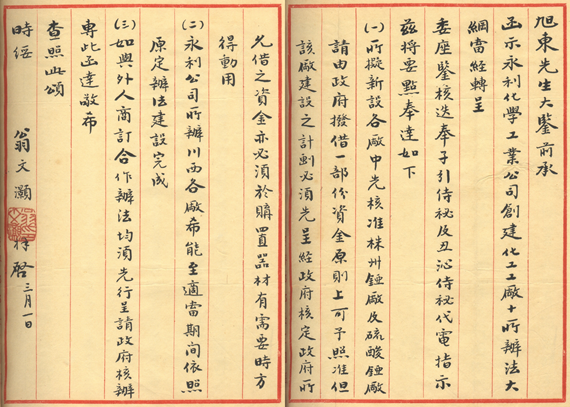 旭東先生大鑒前承
函示永利化學工業公司創建化工工廠十所辦法大
綱當經轉呈
委座鑒核迭奉子引侍秘及丑沁侍秘代電指示
茲將要點奉達如下
(一)所擬新設各廠中先核准株州錏廠及硫酸錏廠
請由政府撥借一部份資金原則上可予照准但
該廠建設之計劃必須先呈經政府核定政府所
允借之資金亦必須於購置器材有需要時方
得動用
(二)永利公司所辦川西各廠希能至適當期间依照
原定辦法建設完成
(三)如與外人商訂合作辦法均須先行呈請政府核辦
專此函達敬希
查照此頌
時綏
翁文灝 拜啓 三月一日